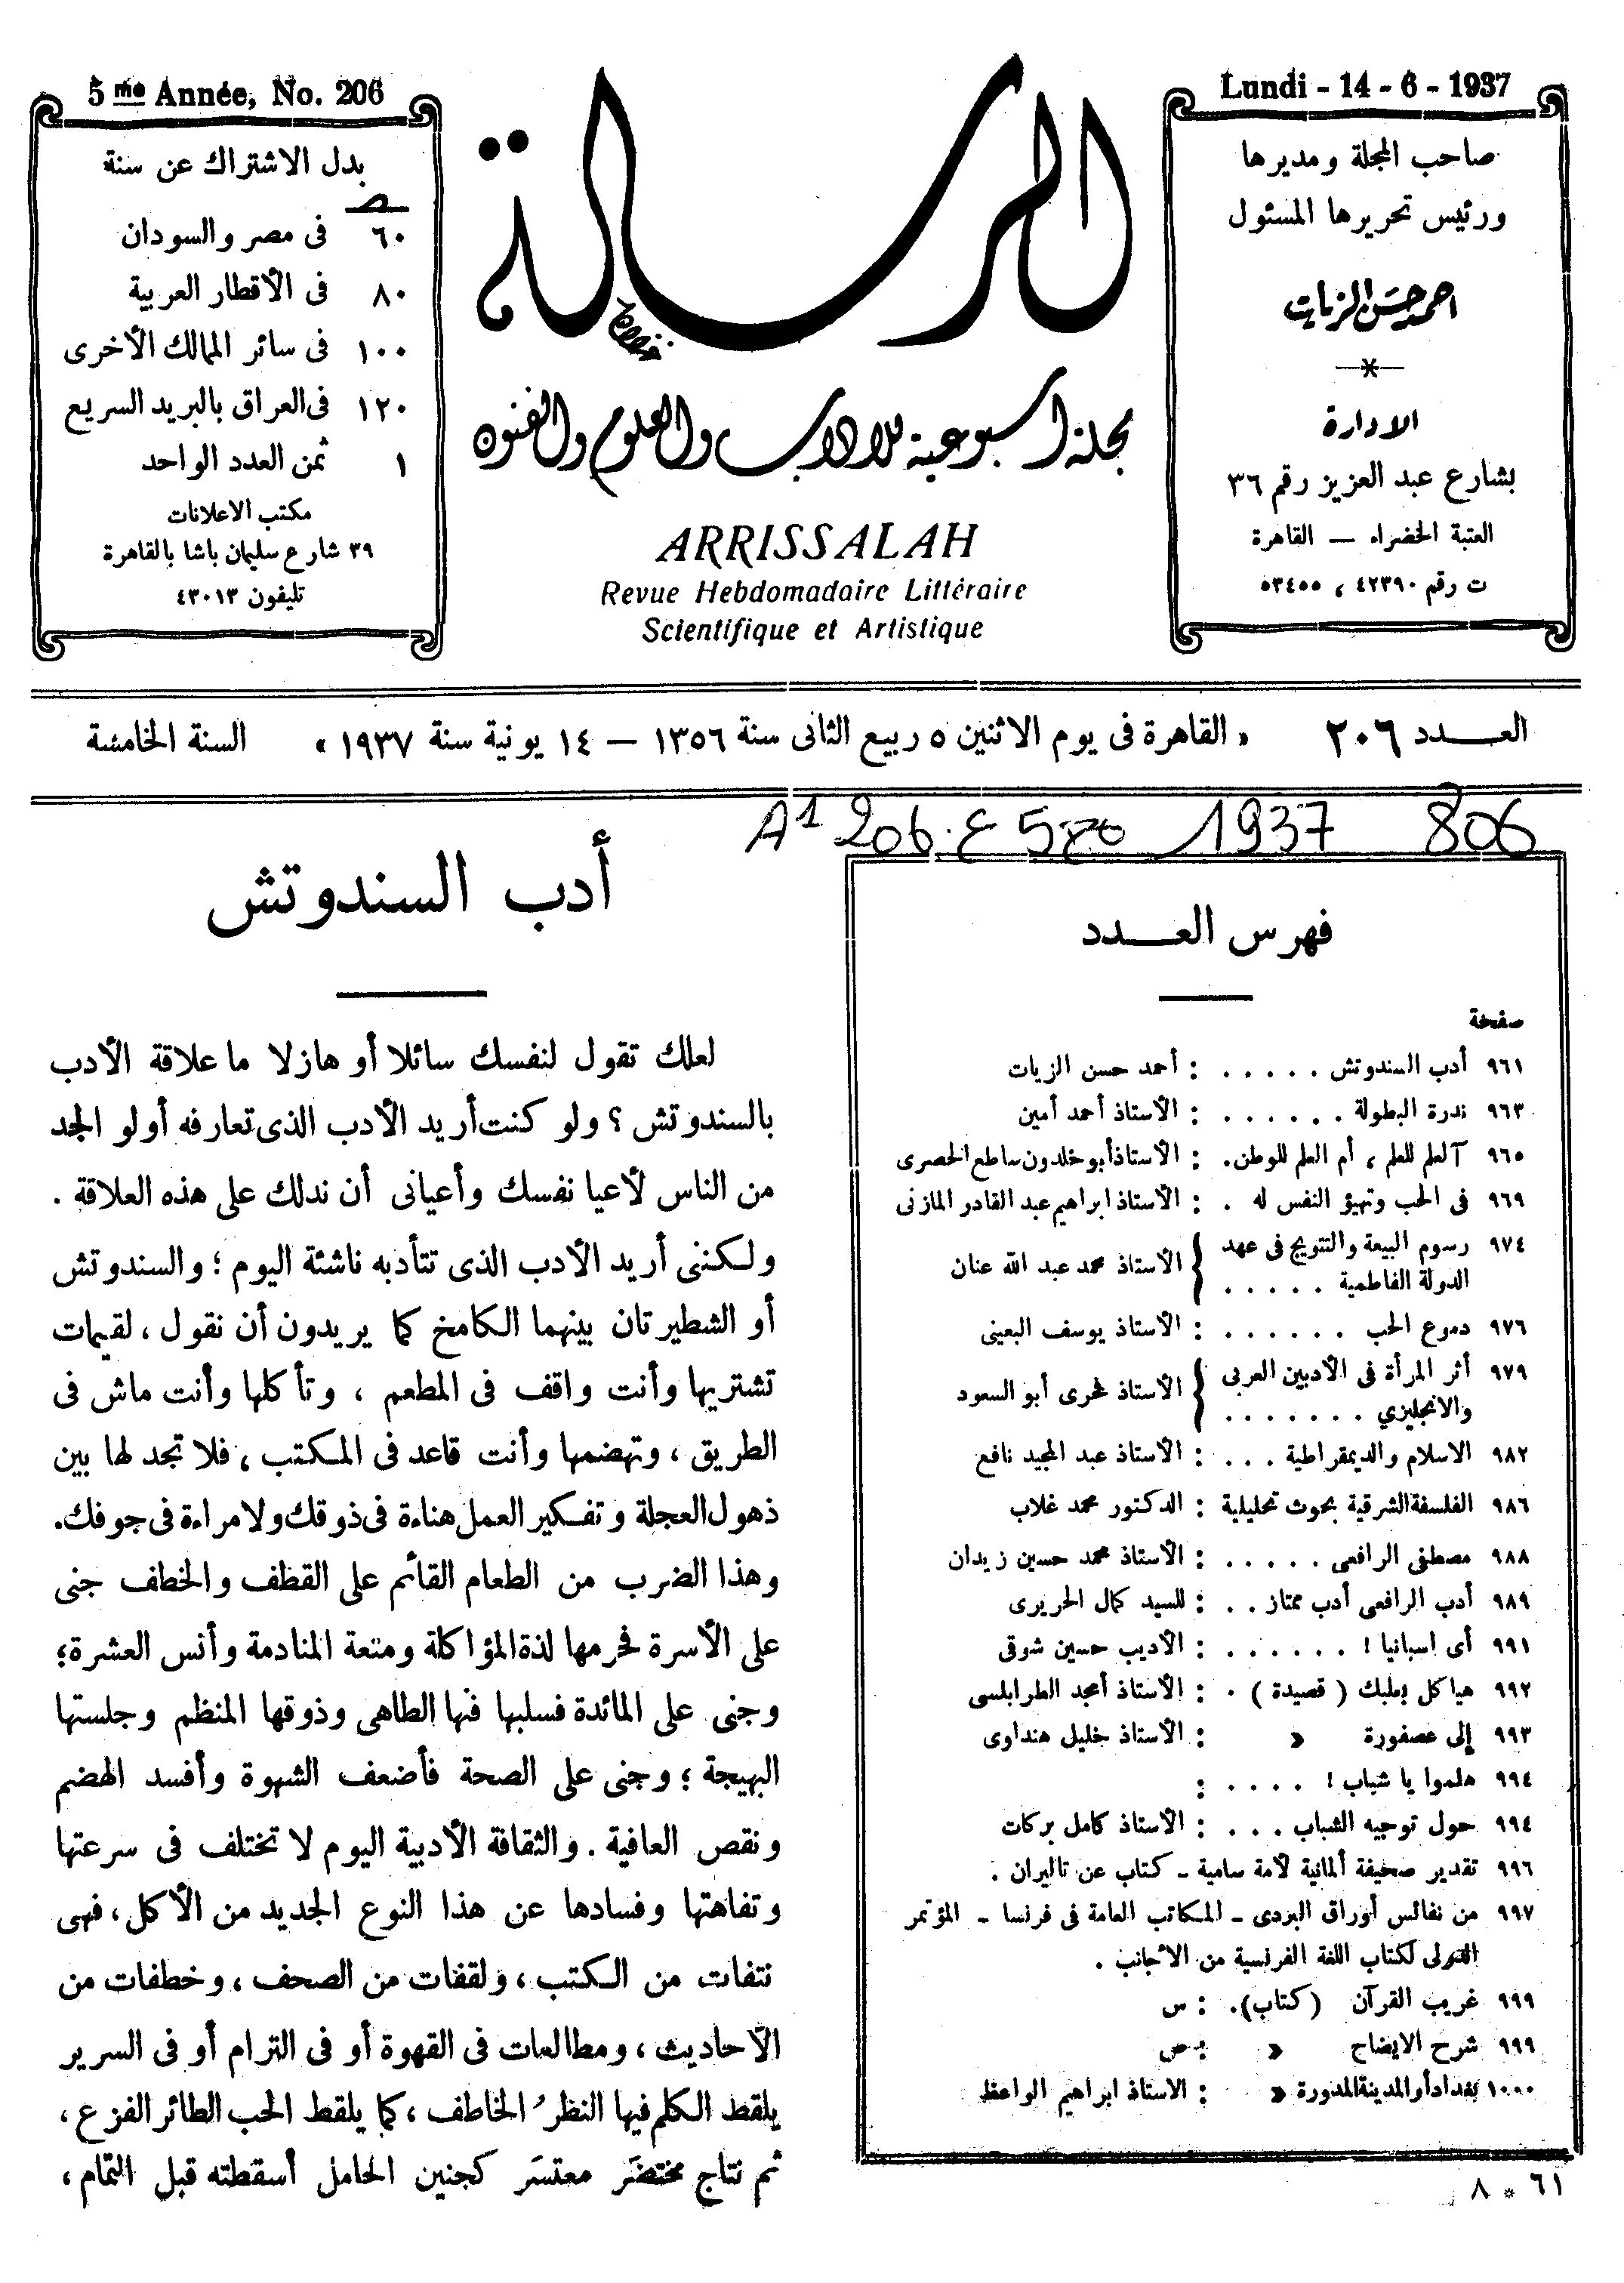 5 me Année, No. 206
Lundi - 14 - 6 - 1937
صاحب المجلة ومديرها
ورئيس تحريرها المسئول
احمد حسن الزيات
الادارة
بشارع عبد العزيز رقم ٣٦
العتبة الخضراء — القاهرة
ت رقم ٤٢٣٩٠ ، ٥٣٤٥٥
الرسالة
مجلة اسبوعية للآداب والعلوم والفنون
ARRISSALAH
Revue Hebdomadaire Littéraire
Scientifique et Artistique
بدل الاشتراك عن سنة
٦٠ فى مصر والسودان
٨٠ فى الأقطار العربية
١٠٠ فى سائر الممالك الأخرى
١٢٠ فى العراق بالبريد السريع
١ ثمن العدد الواحد
مكتب الاعلانات
٣٩ شارع سليمان باشا بالقاهرة
تليفون ٤٣٠١٣
العـــدد ٢٠٦ « القاهرة فى يوم الاثنين ٥ ربيع الثانى سنة ١٣٥٦ — ١٤ يونية سنة ١٩٣٧ » السنة الخامسة
1937 806
فهرس العـــدد
صفحة
٩٦١ أدب السندوتش . . . . . : أحمد حسن الزيات
٩٦٣ ندرة البطولة . . . . . . : الأستاذ أحمد أمين
٩٦٥ آلعلم للعلم ، أم العلم للوطن. : الأستاذ أبو خلدون ساطع الحصرى
٩٦٩ فى الحب وتهيؤ النفس له . : الأستاذ ابراهيم عبد القادر المازنى
٩٧٤ رسوم البيعة والتتويج فى عهد الدولة الفاطمية . . . . . } الأستاذ محمد عبد الله عنان
٩٧٦ دموع الحب . . . . . . : الأستاذ يوسف البعينى
٩٧٩ أثر المرأة فى الأدبين العربى والانجليزي . . . . . . . } الأستاذ فخرى أبو السعود
٩٨٢ الاسلام والديمقراطية . . . : الأستاذ عبد المجيد نافع
٩٨٦ الفلسفة الشرقية بحوث تحليلية : الدكتور محمد غلاب
٩٨٨ مصطفى الرافعى . . . . . : الأستاذ محمد حسين زيدان
٩٨٩ أدب الرافعى أدب ممتاز . . : للسيد كمال الحريرى
٩٩١ أى اسبانيا ! . . . . . . : الأديب حسين شوقى
٩٩٢ هياكل بعلبك ( قصيدة ) . : الأستاذ أمجد الطرابلسى
٩٩٣ إلى عصفورة » : الأستاذ خليل هنداوى
٩٩٤ هلموا يا شباب ! . . . . :
٩٩٤ حول توجيه الشباب . . . : الأستاذ كامل بركات
٩٩٦ تقدير صحيفة ألمانية لأمة سامية - كتاب عن تاليران .
٩٩٧ من نفائس أوراق البردى - المكاتب العامة فى فرنسا - المؤتمر
الدولى لكتاب اللغة الفرنسية من الأجانب .
٩٩٩ غريب القرآن (كتاب). : س
٩٩٩ شرح الايضاح » : ص
١٠٠٠ بغداد أو المدينة المدورة » : الاستاذ ابراهيم الواعظ
٦١ * ٨
أدب السندوتش
لعلك تقول لنفسك سائلا أو هازلا ما علاقة الأدب
بالسندوتش ؟ ولو كنت أريد الأدب الذى تعارفه أولو الجد
من الناس لأعيا نفسك وأعيانى أن ندلك على هذه العلاقة .
ولكننى أريد الأدب الذى تتأدبه ناشئة اليوم ؛ والسندوتش
أو الشطيرتان بينهما الكامخ كما يريدون أن نقول ، لقيمات
تشتريها وأنت واقف فى المطعم ، وتأكلها وأنت ماش فى
الطريق ، وتهضمها وأنت قاعد فى المكتب ، فلا تجد لها بين
ذهول العجلة وتفكير العمل هناءة فى ذوقك ولا مراءة فى جوفك.
وهذا الضرب من الطعام القائم على القطف والخطف جنى
على الأسرة فحرمها لذة المؤاكلة ومتعة المنادمة وأنس العشرة؛
وجنى على المائدة فسلبها فنها الطاهى وذوقها المنظم وجلستها
البهيجة ؛ وجنى على الصحة فأضعف الشهوة وأفسد الهضم
ونقص العافية . والثقافة الأدبية اليوم لا تختلف فى سرعتها
وتفاهتها وفسادها عن هذا النوع الجديد من الأكل ، فهى
نتفات من الكتب ، ولقفات من الصحف ، وخطفات من
الأحاديث ، ومطالعات فى القهوة أو فى الترام أو فى السرير
يلقط الكلم فيها النظرُ الخاطف ، كما يلقط الحب الطائر الفزع ،
ثم نتاج مختضَر معتسَر كجنين الحامل أسقطته قبل التمام ،